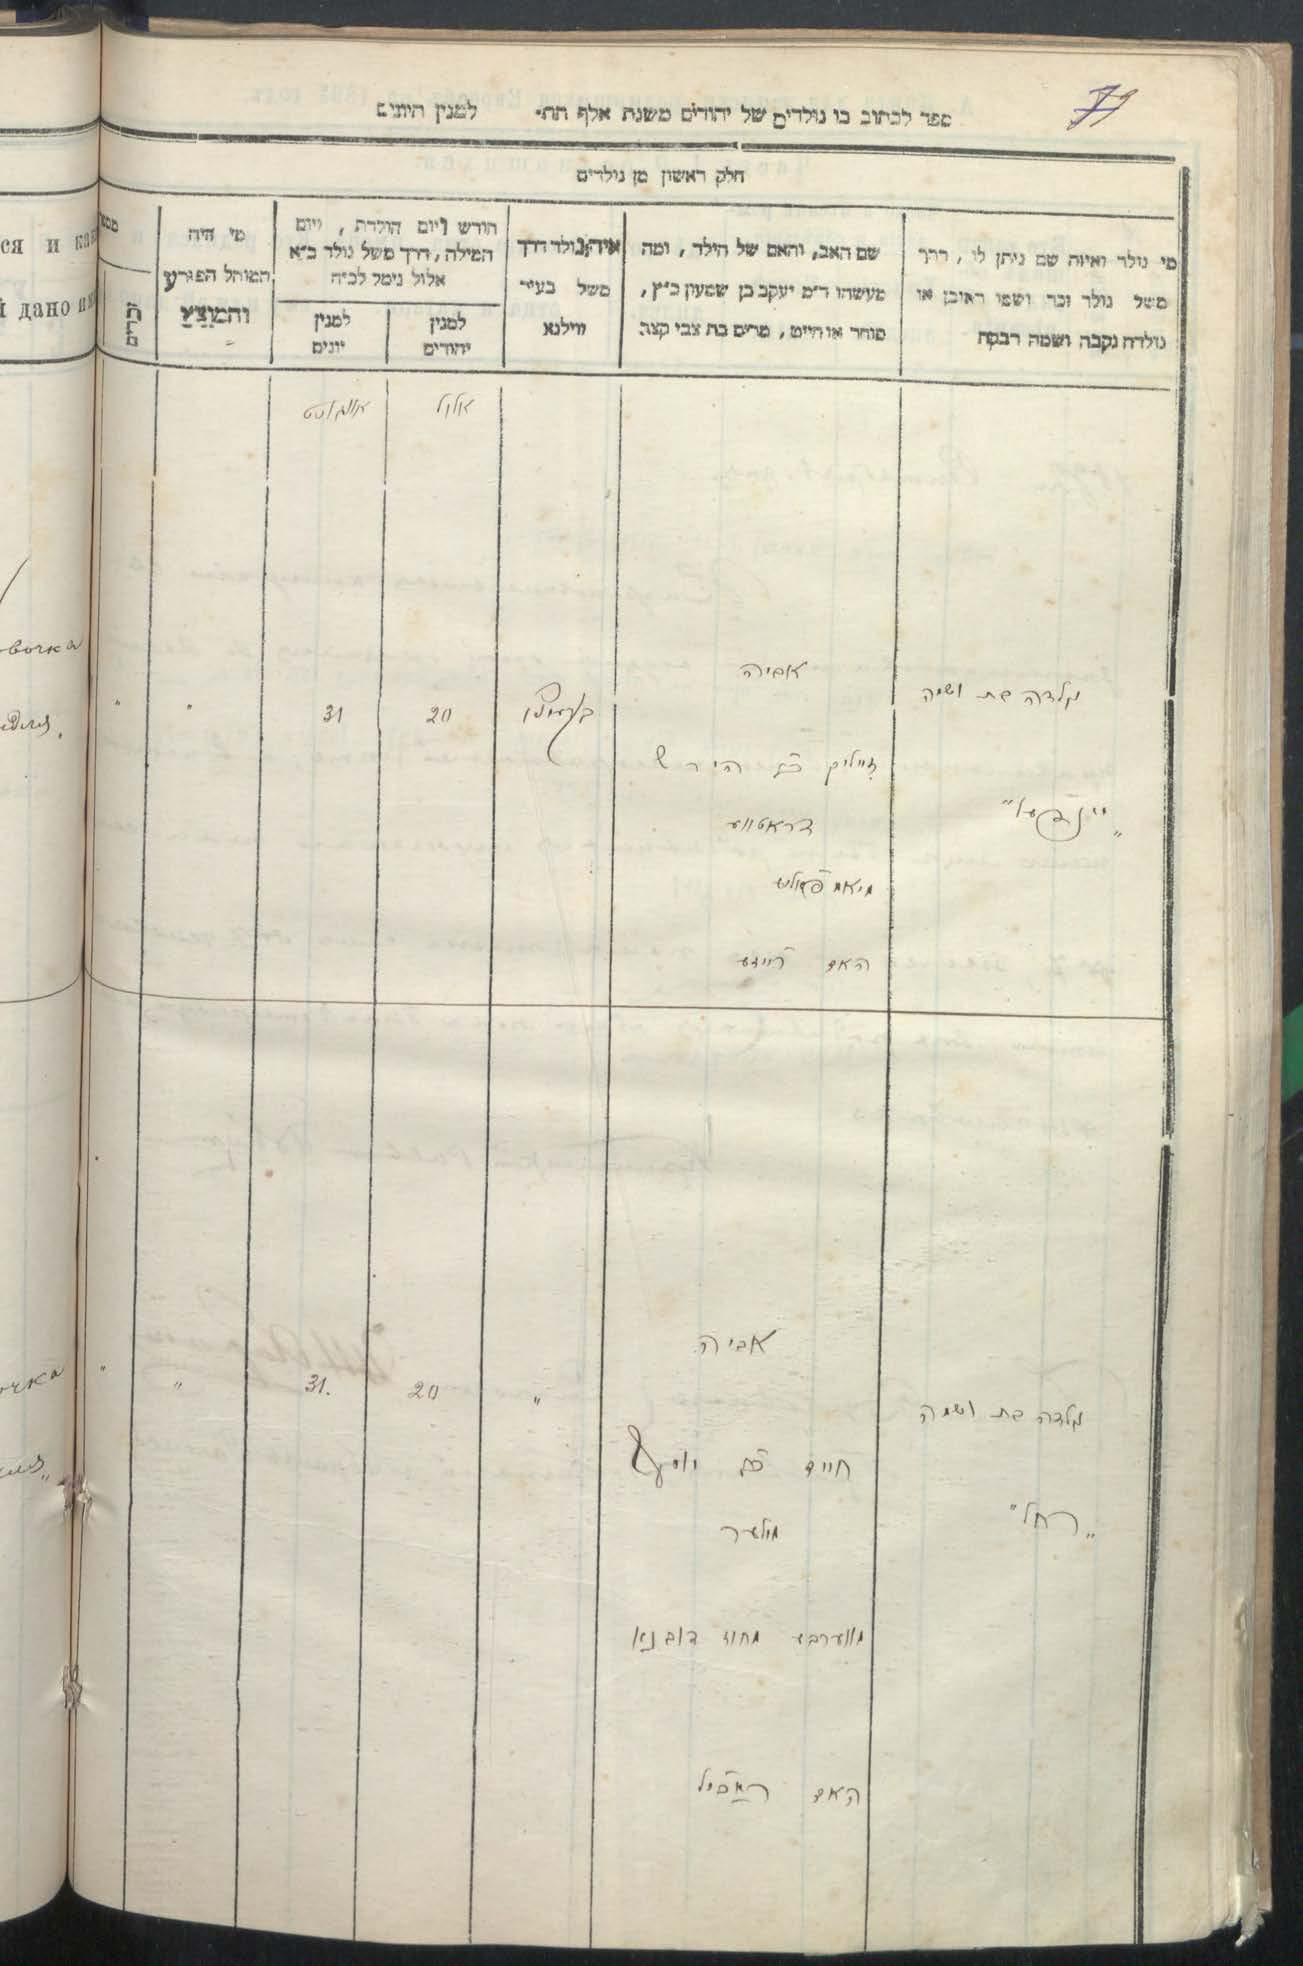 79
ספר לכתוב בו נולדים של יהודים משנת אלף תת״ למנין היונים
חלק ראשון מן נולדים
מי נולד ואיזה שם ניתן לו, דרך
משל נולד זכר ושמו ראובן או
נולדה נקבה ושמה רבקה
שם האב, והאם של הילד, ומה
מעשהו ד״מ יעקב בן שמעון כ״ץ,
סוחר או חייט, מרים בת צבי קצב
איה נולד דרך
משל בעיר
ווילנא
חודש ויום הולדת, ויום
המילה, דרך משל נולד כ״א
אלול נימל לכ״ח
למנין
יהודים
למנין
יונים
מי היה
המוהל הפורע
והמוצץ
זכרים
ся и ка
й дано и
אלול
אויגוסט
נולדה בת ושמה
אביה
20
31
"
"
זייליק בן הירש
דראטווע
האם
נולדה בת ושמה
"רחל"
אביה
"
20
31.
"
"
חיים בן יוסף
מילער
ווערבע מחוז דובנא
האם
овочка
очка